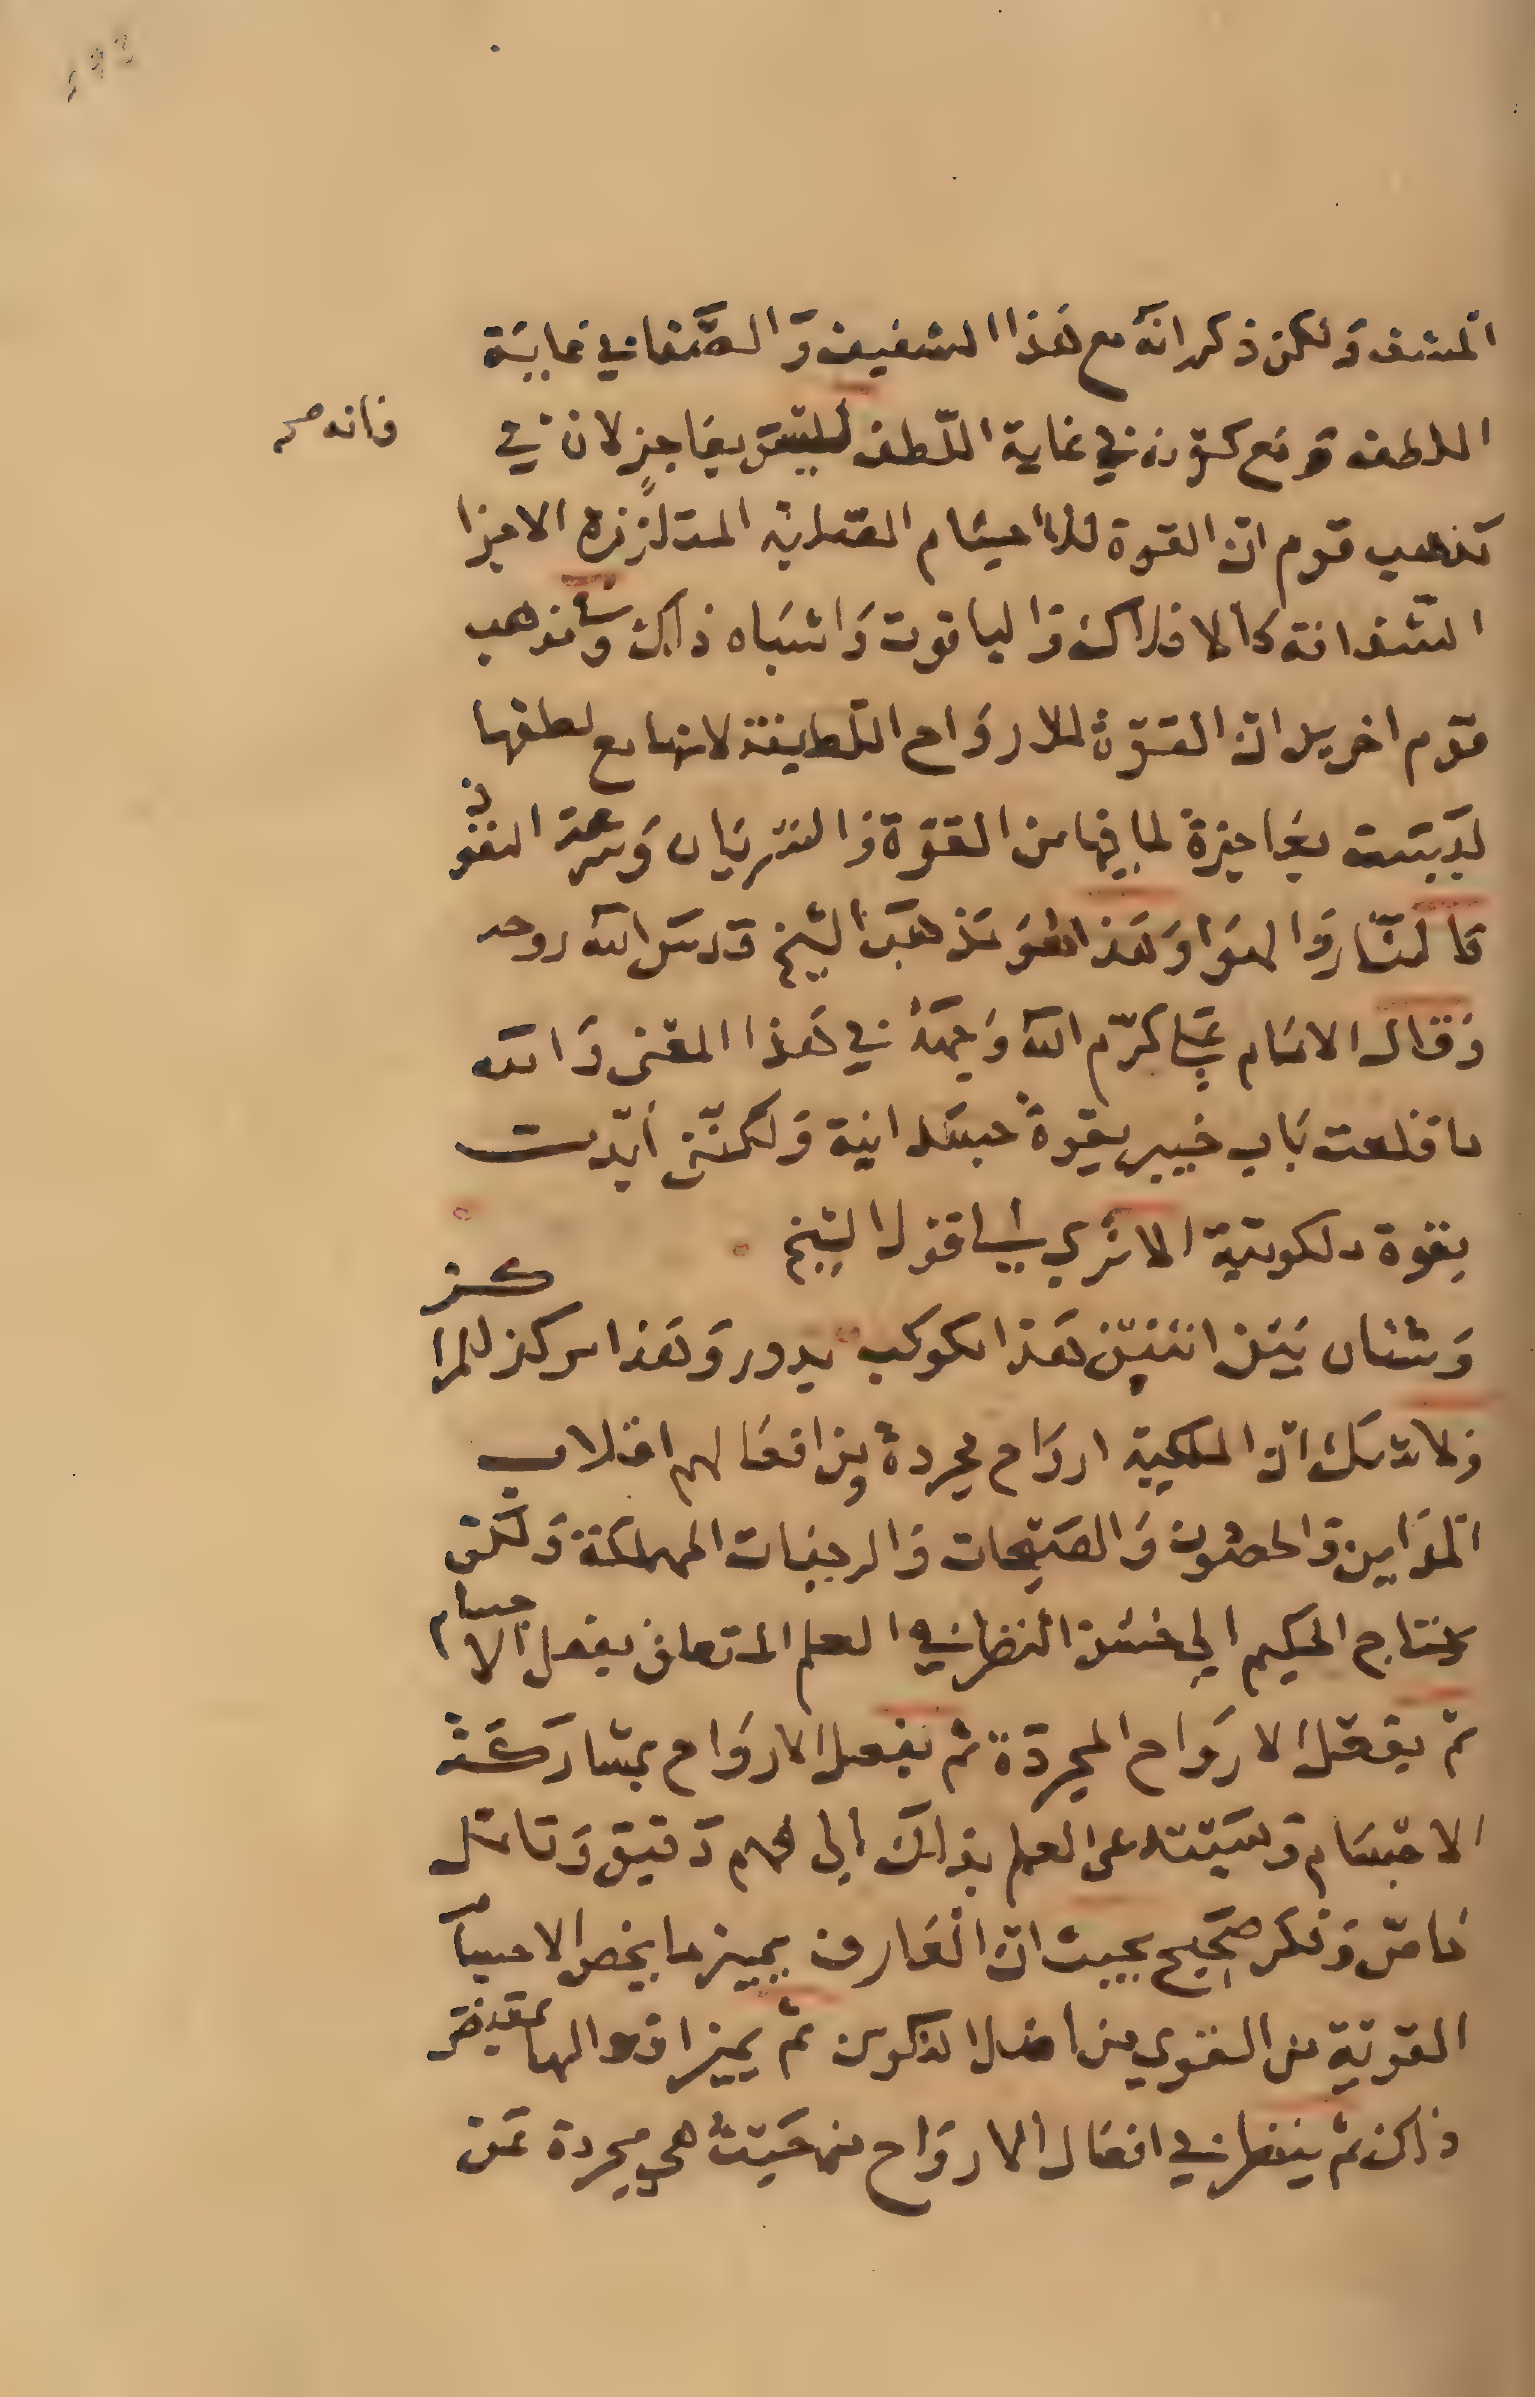 المشف وَلكن ذكر انهُ مع هَذا الشفيف وَالصَّفا في غايَة
اللطف وَمَع كَونه في غاية اللّطف ليسَ بعَاجزٍ لان في
فانه
مَذهب قوم انّ القوة للاجسَام الصَلبَة المتلززة الاجزا
الشفافة كالافلاك وَالياقوت وَاشبَاه ذلك وَمذهب
قوم اخرين انّ القوّة للاروَاح اللّطيفة لانها مع لطفها
ليسَت بعَاجزة لما فيها من القوّة وَالسّريَان وَسرعة النفوذ
كالنّار وَالهوَا وَهَذا هوَ مَذهَب الشيخ قدسَ الله روحه
وَقال الامَام عَلي كرّم الله وَجهَهُ في هَذا المعَنى وَالله
ما قلعت بَاب خيبر بقوة جسَدانية وَلكنّني أيّدت
بقوة ملكوتية الا تَرى الى قول الشيخ
وَشتان بَين اثنَين هَذا كوكب يدور وَهَذا مركز للمراكز
وَلا شك انّ الملكية اروَاح مجردة وَمن افعَالهم اقلاب
المدَاين وَالحصُون وَالصَيحات وَالرجفات المهلكَة وَلكن
يحتاج الحكيم الى حُسْن النظر في العلم المتعلق بفعل الاجسام
ثمّ بفعْل الاروَاح المجردَة ثم بفعل الاروَاح بمشاركَة
الاجْسَام وَ العلم بذلكَ الى فهم دَقيق وَتامّل
خاص وَفكر صَحيح بحيث انّ العَارف يميز ما يخص الاجسام
القوية من القوى من التكوين ثمّ يميز افعالها بمقتضى
ذلك ثمّ ينظر في افعَال الاروَاح من حَيث هي مجردة عَن